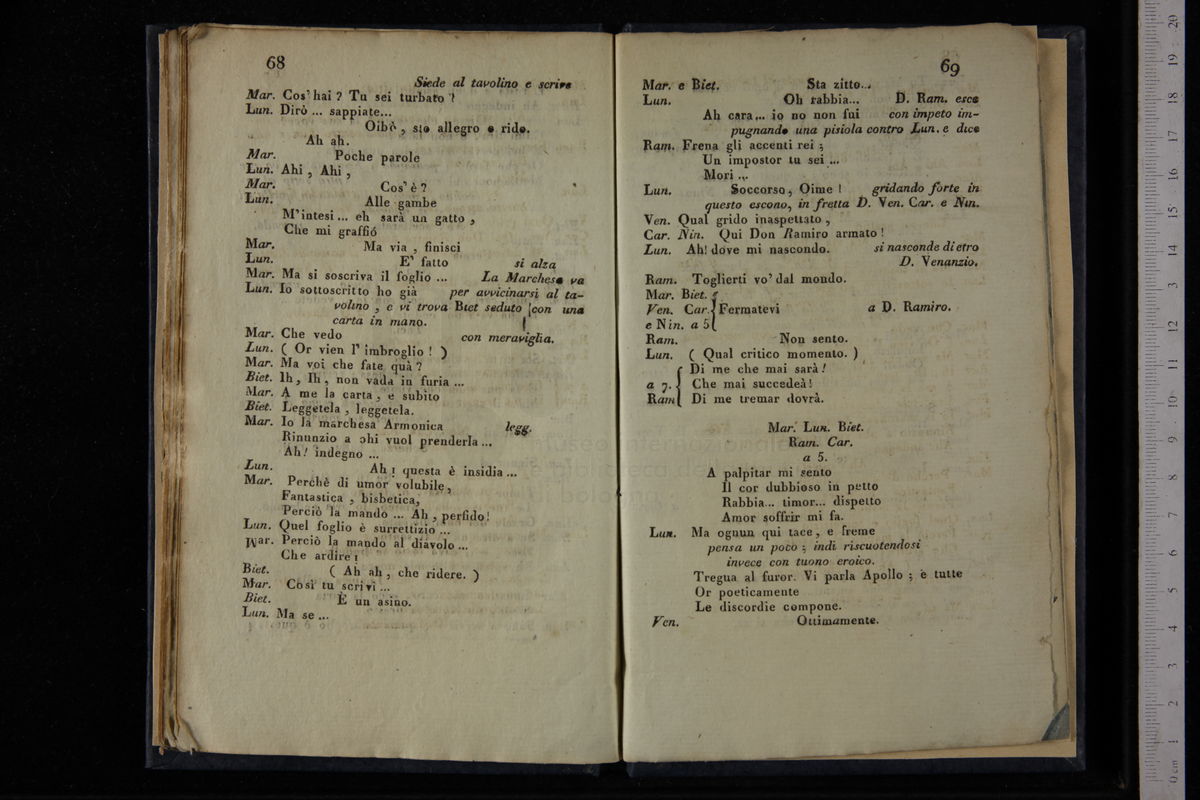 68
Siede al tavolino e scrive
Mar. Cos' hai ? Tu sei turbato ?
Lun. Dirò ... sappiate...
Oibò , sto allegro e rido.
Ah ah.
Mar. Poche parole
Lun. Ahi , Ahi ,
Mar. Cos' è ?
Lun. Alle gambe
M'intesi ... eh sarà un gatto ,
Che mi graffiò
Mar. Ma via , finisci
Lun. E' fatto si alza
Mar. Ma si soscriva il foglio ... La Marchesa va
Lun. Io sottoscritto ho già per avvicinarsi al ta-
volino , e vi trova Biet seduto con una
carta in mano.
Mar. Che vedo con meraviglia.
Lun. ( Or vien l' imbroglio ! )
Mar. Ma voi che fate quà ?
Biet. Ih, Ih, non vada in furia ...
Mar. A me la carta, e subito
Biet. Leggetela , leggetela.
Mar. Io la marchesa Armonica legg.
Rinunzio a chi vuol prenderla ...
Ah! indegno ...
Lun. Ah ! questa è insidia ...
Mar. Perchè di umor volubile,
Fantastica , bisbetica,
Perciò la mando ... Ah , perfido!
Lun. Quel foglio è surrettizio ...
Mar. Perciò la mando al diavolo ...
Che ardire!
Biet. ( Ah ah , che ridere. )
Mar. Così tu scrivi ...
Biet. È un asino.
Lun. Ma se ...
69
Mar. e Biet. Sta zitto...
Lun. Oh rabbia... D. Ram. esce
Ah cara... io no non fui con impeto im-
pugnando una pisiola contro Lun. e dice
Ram. Frena gli accenti rei ;
Un impostor tu sei ...
Mori ...
Lun. Soccorso, Oime ! gridando forte in
questo escono, in fretta D. Ven. Car. e Nin.
Ven. Qual grido inaspettato ,
Car. Nin. Qui Don Ramiro armato !
Lun. Ah! dove mi nascondo. si nasconde dietro
D. Venanzio.
Ram. Toglierti vo' dal mondo.
Mar. Biet.
Ven. Car. Fermatevi a D. Ramiro.
e Nin. a 5
Ram. Non sento.
Lun. ( Qual critico momento. )
Di me che mai sarà!
a 7. Che mai succedeà!
Ram Di me tremar dovrà.
Mar. Lun. Biet.
Ram. Car.
a 5.
A palpitar mi sento
Il cor dubbioso in petto
Rabbia... timor... dispetto
Amor soffrir mi fa.
Lun. Ma ognun qui tace, e freme
pensa un poco ; indi riscuotendosi
invece con tuono eroico.
Tregua al furor. Vi parla Apollo ; e tutte
Or poeticamente
Le discordie compone.
Ven. Ottimamente.